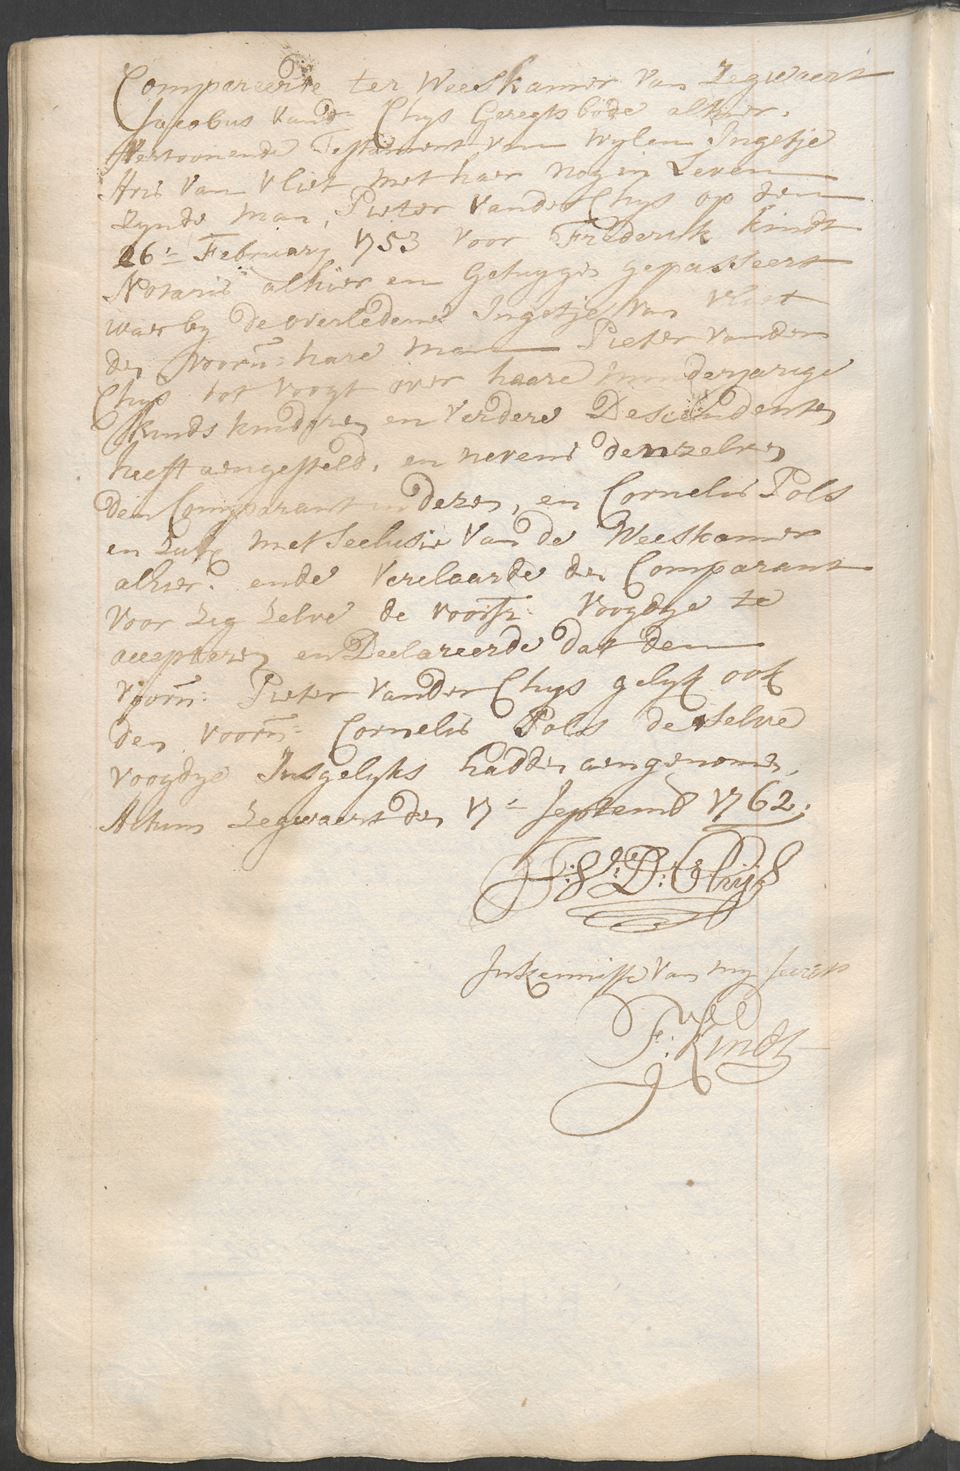 Compareerde ter Weeskamer van Zegwaert
Jacobus vandr Chys Geregtsbode alhier.
Vertoonende Testament van wylen Ingetje
Aris van Vliet met haer nog in Leven
Zynde man, Pieter vander Chys op den
26: February 1753 voor Frederik Kindt
Notaris alhier en Getuygen gepasseert
waer by de overledene Ingetje van Vliet
den voorn: hare man Pieter vander
Chys tot voogt over haare minderjarige
kindskinderen en verdere Descendenten
heeft aengesteld, en nevens denzelven
den Comparant in dezen, en Cornelis Pols
en zulx met Seclusie van de Weeskamer
alhier. ende verclaarde den Comparant
voor zig zelve de voorsz: voogdye te
accepteren en Declareerde dat den
voorn: Pieter vander Chys gelyk ook
den voorn: Cornelis Pols deselve
voogdye Insgelyks hadden aengenomen,
Actum Zegwaert den 17: Septemb 1762.
J: Vn: Dr: Chijs
In kennisse van my Secrets
F: Kindt